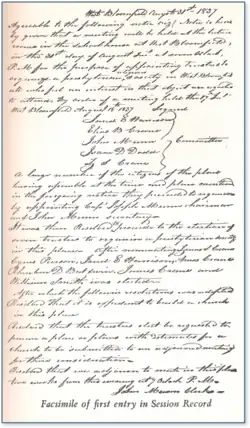 West Bloomfield August 31st 1837
Agreeable to the following notice viz; Notice is here
by given that a meeting will be held at the lecture
room in the school house at West Bloomfield
on the 31st day of August inst at seven o'clock
P. M. for the purpose of appointing trustees to
organize a presbyterian society in West Bloomfield
all who feel an interest in that object are invited
to attend By order of a meeting held the
West Bloomfield August 1837 Signed
James E Harrison
Elias B Crane
John Munn
Committee
Crane
A large number of the citizens of the place
having assembled at the time and place specified
in the foregoing notice they proceeded to organize
by appointing Capt Joseph Munn chairman
and John Munn secretary
It was then Resolved to proceed to the election of
seven trustees to organize a presbyterian society
in this place
James E Harrison Crane
Baldwin, James Crane and
William Smith was elected
After which the following resolutions was adopted
Resolved that it is expedient to build a church
in this place
Resolved that the trustees elect be requested to
a plan or plans with estimates for a
church to be submitted to an adjourned meeting
for their consideration
Resolved that we adjourn to meet in this place
two weeks from this evening at 7 o'clock P. M.
John Munn Clerk
Facsimile of first entry in Session Record